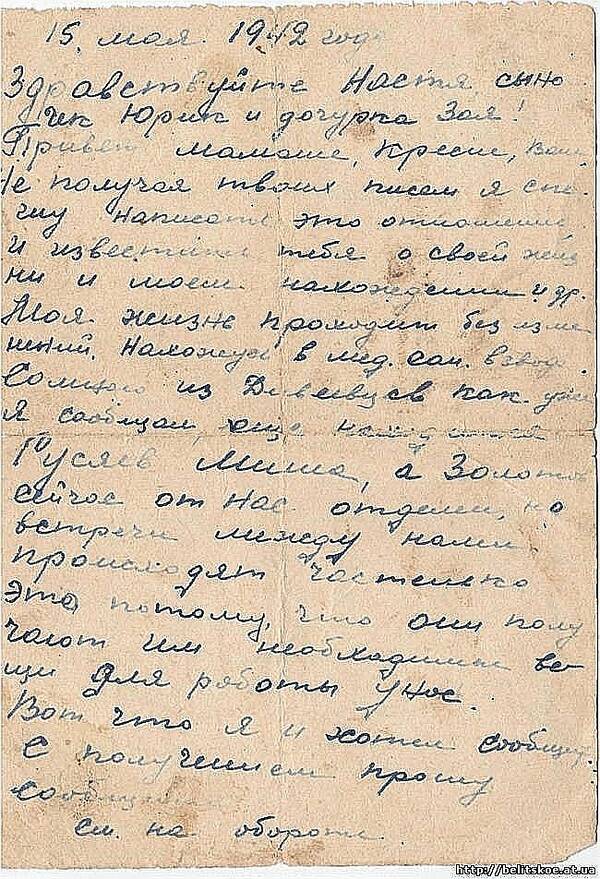 15. мая. 1942 года
Здравствуйте Настя, сыно
чек Юрик и дочурка Зоя!
Привет мамаше, крестн,
Не получая твоих писем я спе
шу написать это отношение
и известить тебя о своей жиз
ни и моем нахождении и др.
Моя жизнь проходит без изме
нений. Нахожусь в мед. сан. взвод.
Со мною из Дивеевцев как уже
я сообщал, еще находится
Гусяев Миша, а Золотов
сейчас от нас отделен, но
встречи между нами
происходят частенько
это потому, что они полу
чают им необходимые ве
щи для работы у нас.
Вот что я и хотел сообщить.
С получением прошу
сообщить
см. на обороте.
http://belitskoe.at.ua